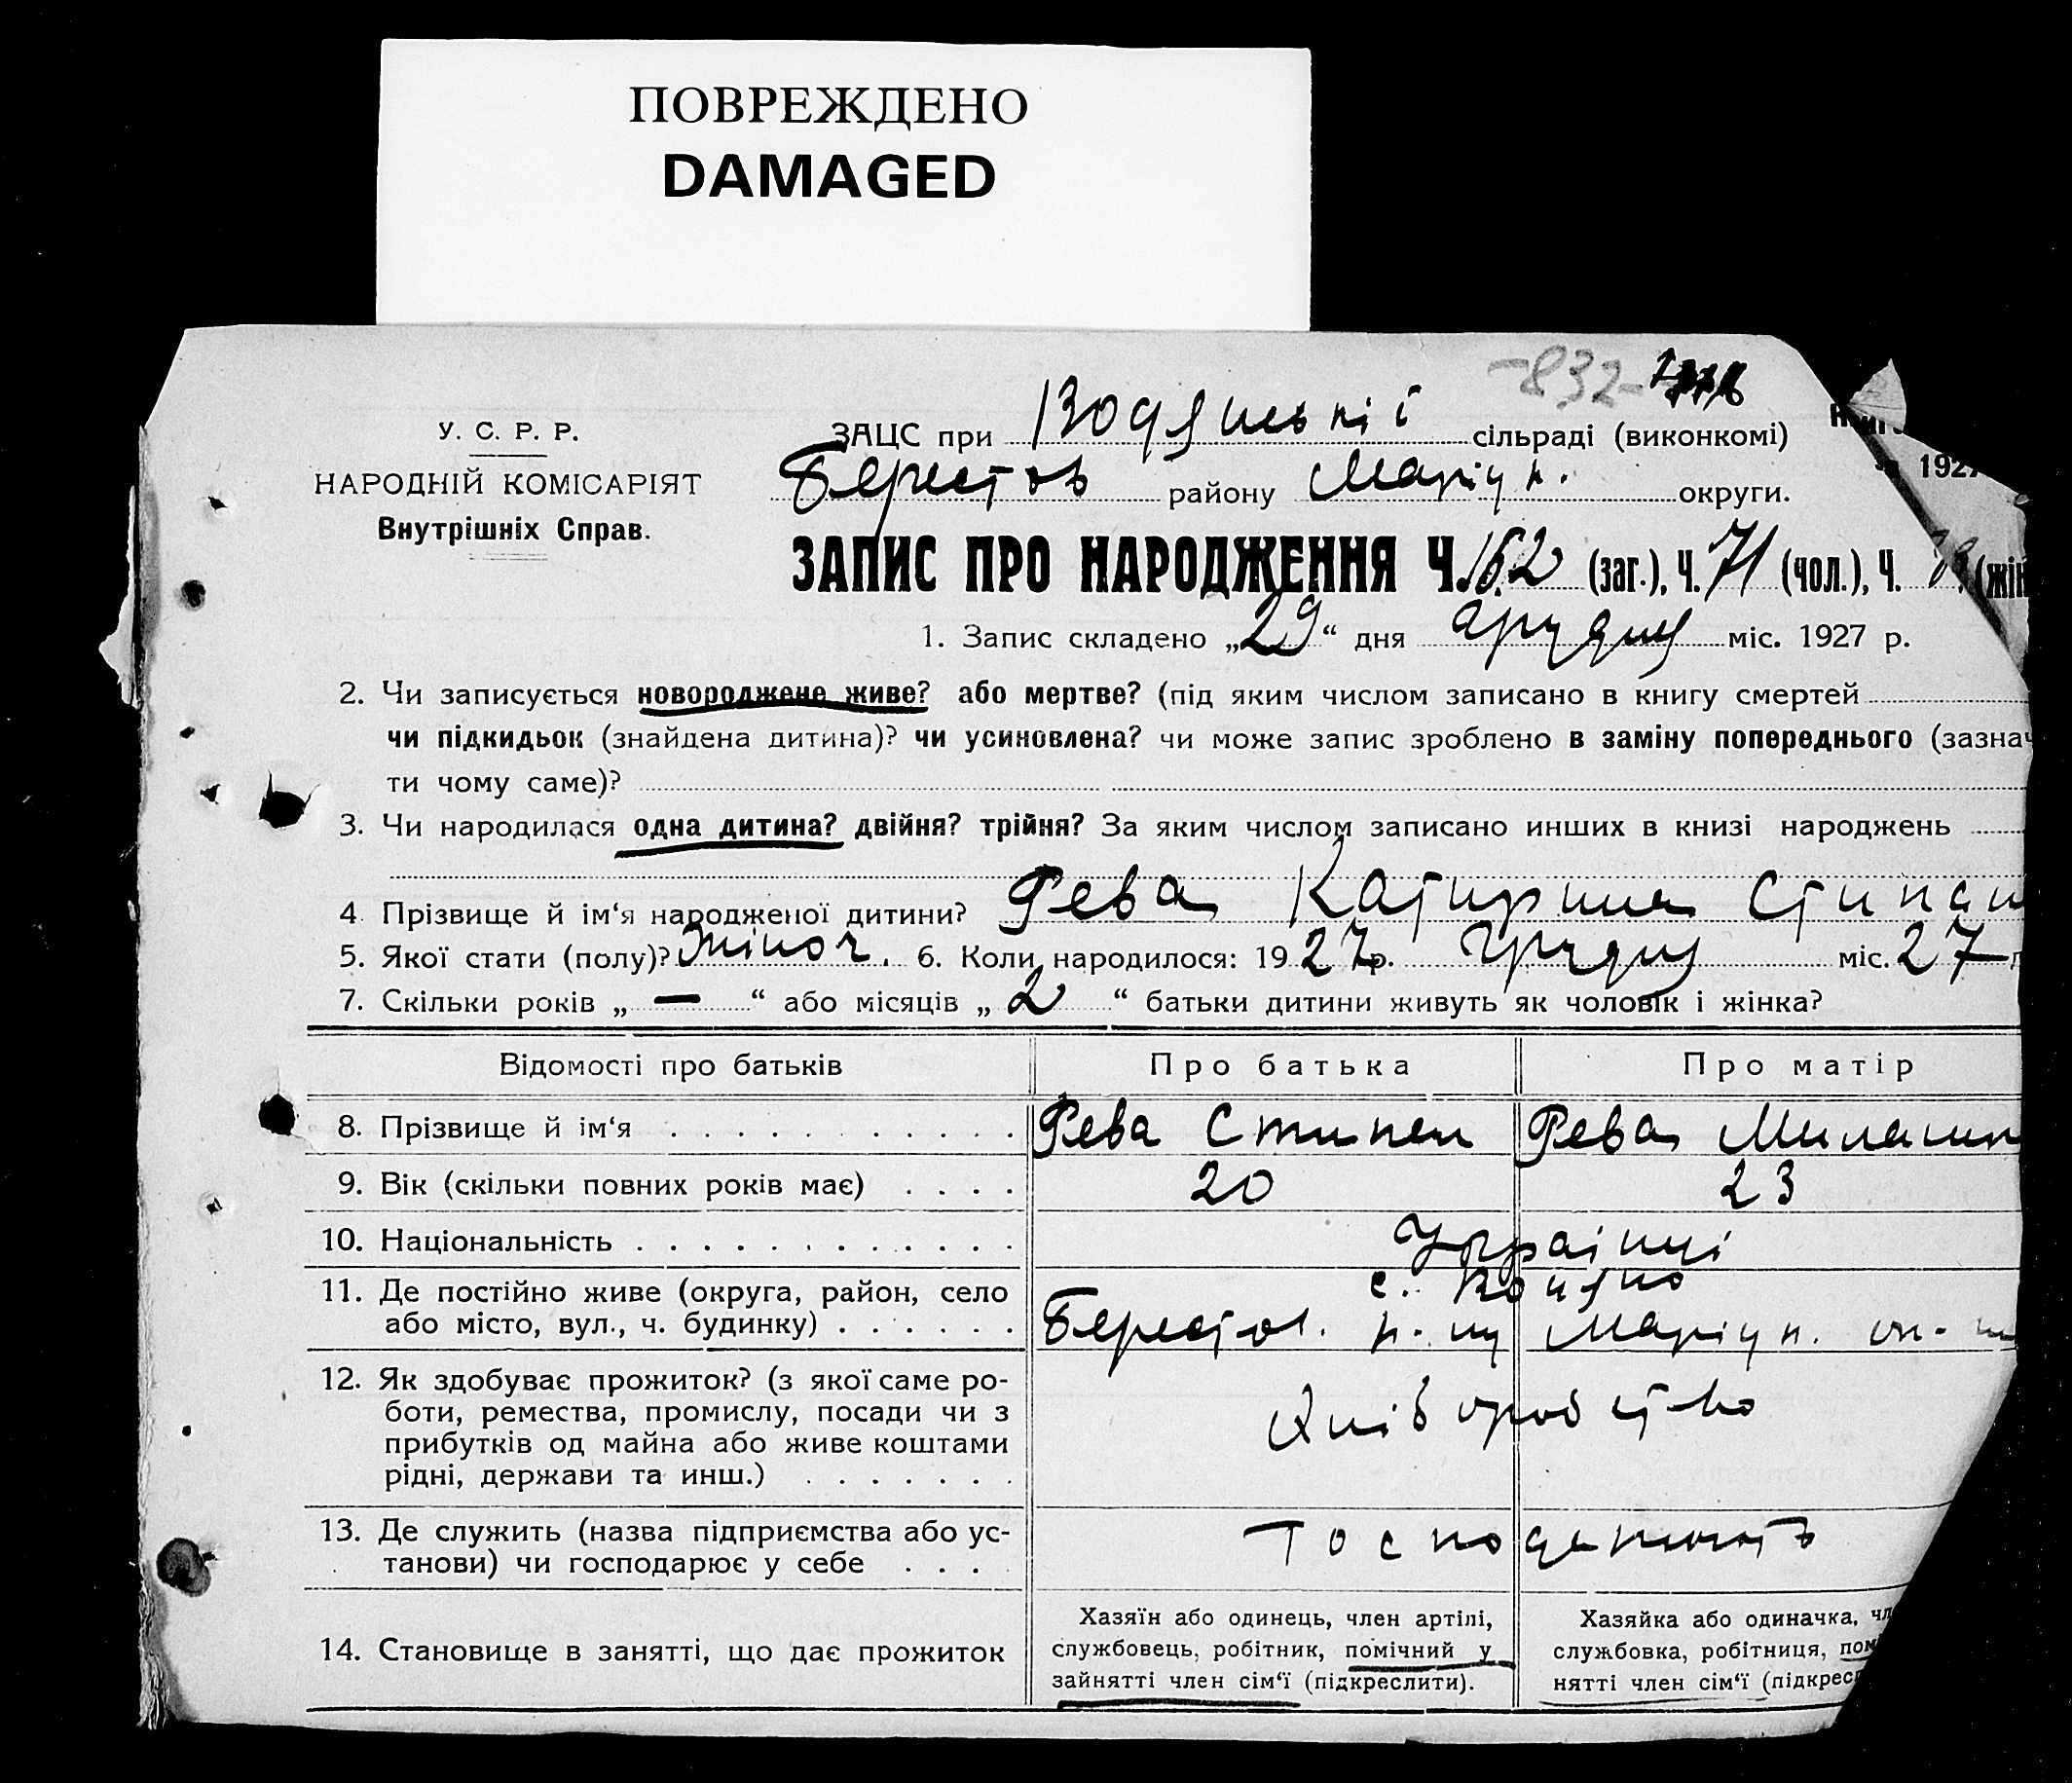 ПОВРЕЖДЕНО
DAMAGED
-832-
У. С. Р. Р.
НАРОДНІЙ КОМІСАРІЯТ
Внутрішніх Справ.
ЗАЦС при Водянські сільраді (виконкомі)
Берестов району Маріуп. округи.
1927
ЗАПИС ПРО НАРОДЖЕННЯ Ч. 152 (заг.), Ч. 71 (чол.), Ч. (жін
1. Запис складено „29“ дня грудня міс. 1927 р.
2. Чи записується новороджене живе? або мертве? (під яким числом записано в книгу смертей
чи підкидьок (знайдена дитина)? чи усиновлена? чи може запис зроблено в заміну попереднього (зазнач
ти чому саме)?
3. Чи народилася одна дитина? двійня? трійня? За яким числом записано инших в книзі народжень
4. Прізвище й ім‘я народженої дитини? Рева Катирина Стипан
5. Якої стати (полу)? жіноч. 6. Коли народилося: 1927 р. Грудня міс. 27
7. Скільки років „ — “ або місяців „ 2 “ батьки дитини живуть як чоловік і жінка?
Відомості про батьків Про батька Про матір
8. Прізвище й ім‘я Рева Стипан Рева Милания
9. Вік (скільки повних років має) 20 23
10. Національність Українці
11. Де постійно живе (округа, район, село с. Водяно
або місто, вул., ч. будинку) Берестов. р-ну Маріуп. ок-
12. Як здобуває прожиток? (з якої саме ро-
боти, ремества, промислу, посади чи з Хліборобство
прибутків од майна або живе коштами
рідні, держави та инш.)
13. Де служить (назва підприємства або ус- Господарюють
танови) чи господарює у себе
14. Становище в занятті, що дає прожиток
Хазяїн або одинець, член артілі,
службовець, робітник, помічний у
зайнятті член сім‘ї (підкреслити).
Хазяйка або одиначка, чл
службовка, робітниця, пом
нятті член сім‘ї (підкрес